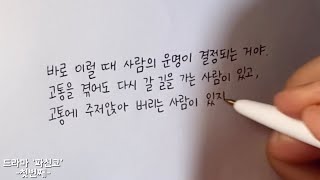 바로 이럴 때 사람의 운명이 결정되는 거야.
고통을 겪어도 다시 갈 길을 가는 사람이 있고,
고통에 주저앉아 버리는 사람이 있지
드라마 '파친코'
-첫번째-